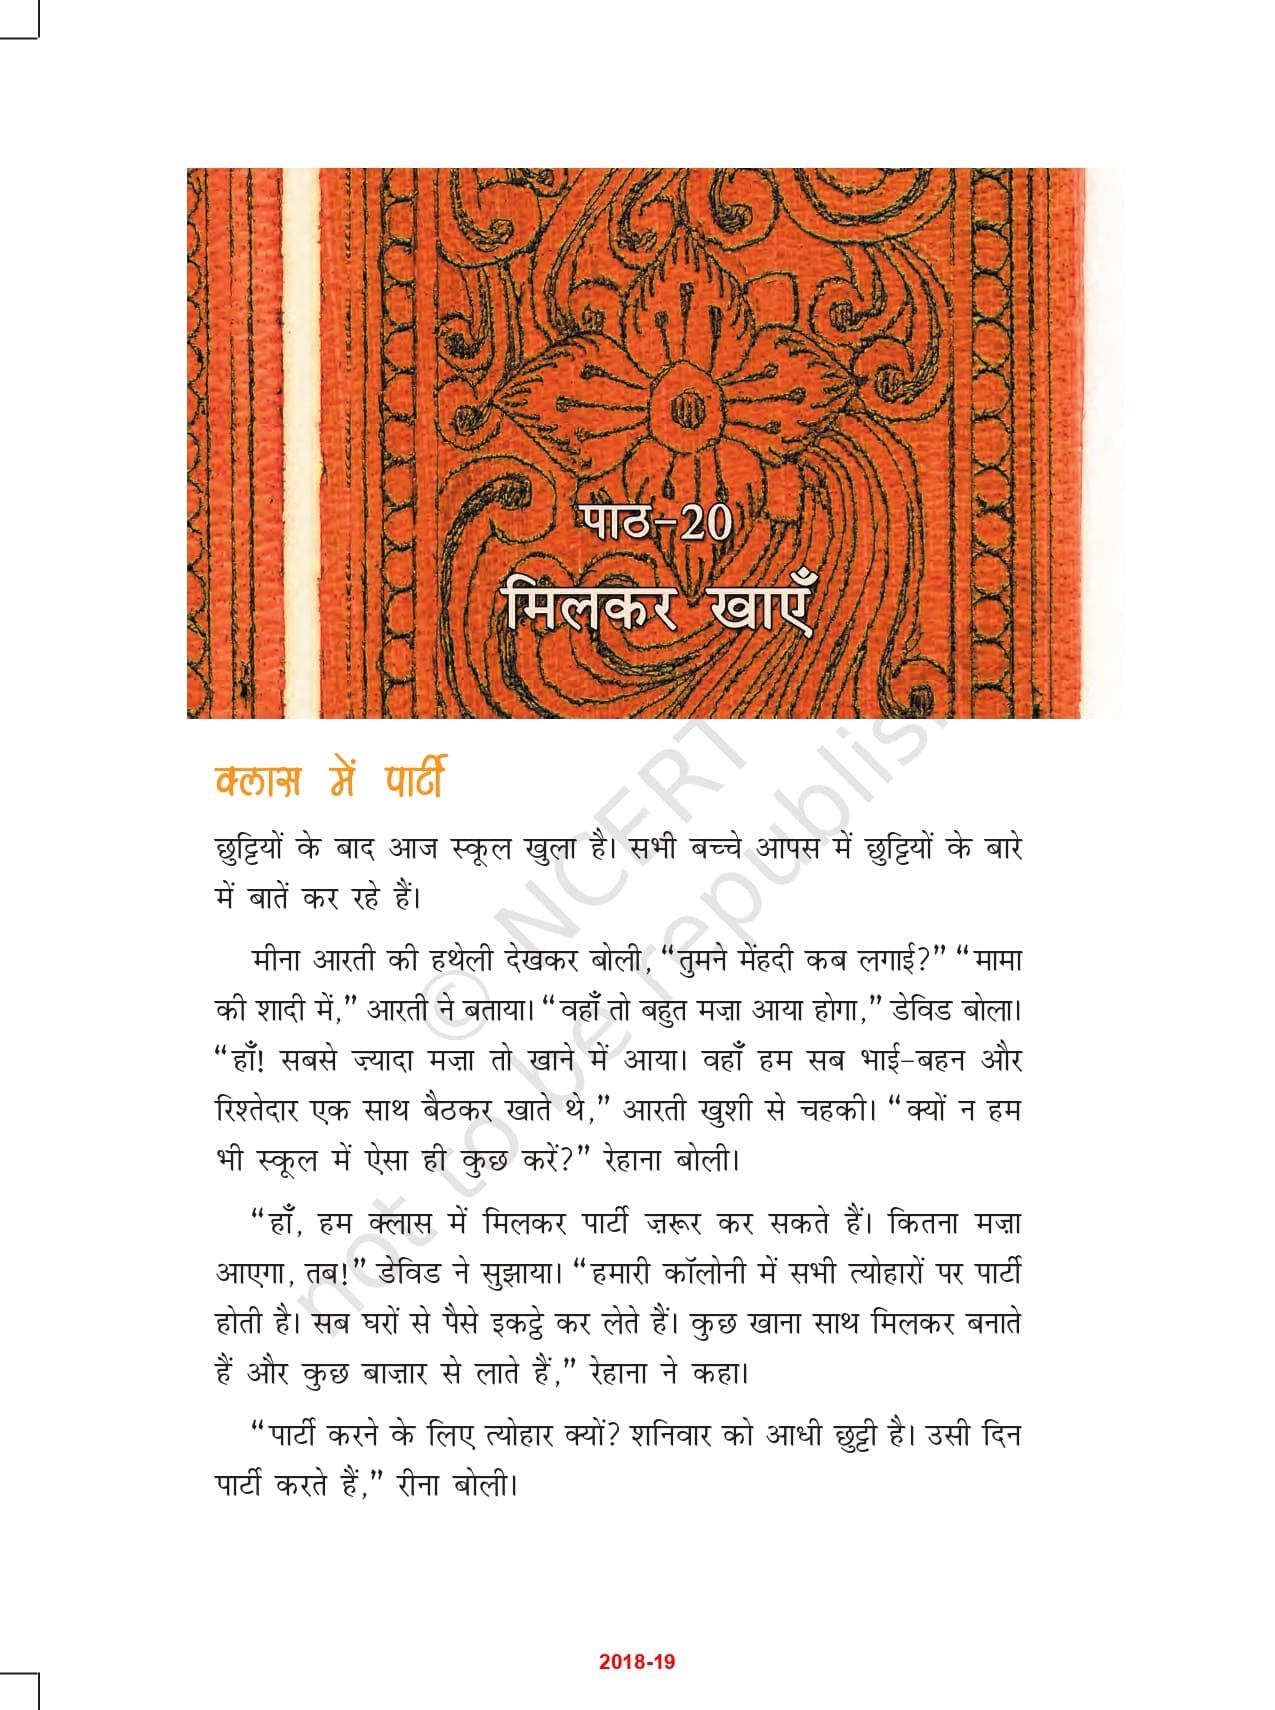 पाठ-20
मिलकर खाएँ
क्लास में पार्टी
छुट्टियों के बाद आज स्कूल खुला है। सभी बच्चे आपस में छुट्टियों के बारे
में बातें कर रहे हैं।
मीना आरती की हथेली देखकर बोली, “तुमने मेंहदी कब लगाई?” “मामा
की शादी में,” आरती ने बताया। “वहाँ तो बहुत मज़ा आया होगा,” डेविड बोला।
“हाँ! सबसे ज़्यादा मज़ा तो खाने में आया। वहाँ हम सब भाई-बहन और
रिश्तेदार एक साथ बैठकर खाते थे,” आरती खुशी से चहकी। “क्यों न हम
भी स्कूल में ऐसा ही कुछ करें?” रेहाना बोली।
“हाँ, हम क्लास में मिलकर पार्टी ज़रूर कर सकते हैं। कितना मज़ा
आएगा, तब!” डेविड ने सुझाया। “हमारी कॉलोनी में सभी त्योहारों पर पार्टी
होती है। सब घरों से पैसे इकट्ठे कर लेते हैं। कुछ खाना साथ मिलकर बनाते
हैं और कुछ बाज़ार से लाते हैं,” रेहाना ने कहा।
“पार्टी करने के लिए त्योहार क्यों? शनिवार को आधी छुट्टी है। उसी दिन
पार्टी करते हैं,” रीना बोली।
© NCERT
not to be republis
2018-19